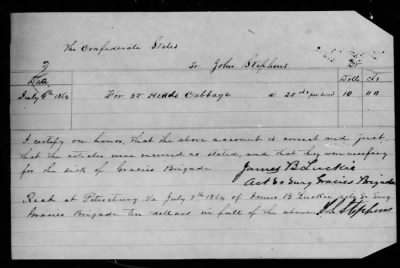 The Confederate States
To John Stephens Dr
Date Dolls Cts
July 9th 1864 For 50 Heads Cabbage a 20cts per head 10 00
I certify on honor, that the above account is correct and just,
that the articles were received as stated, and that they were necessary
for the sick of Gracies Brigade
James B Luckie
Act Sr Surg Gracies Brigade
Recd at Petersburg Va July 9th 1864 of James B Luckie Sr Surg
Gracies Brigade Ten dollars in full of the above
Jn Stephens